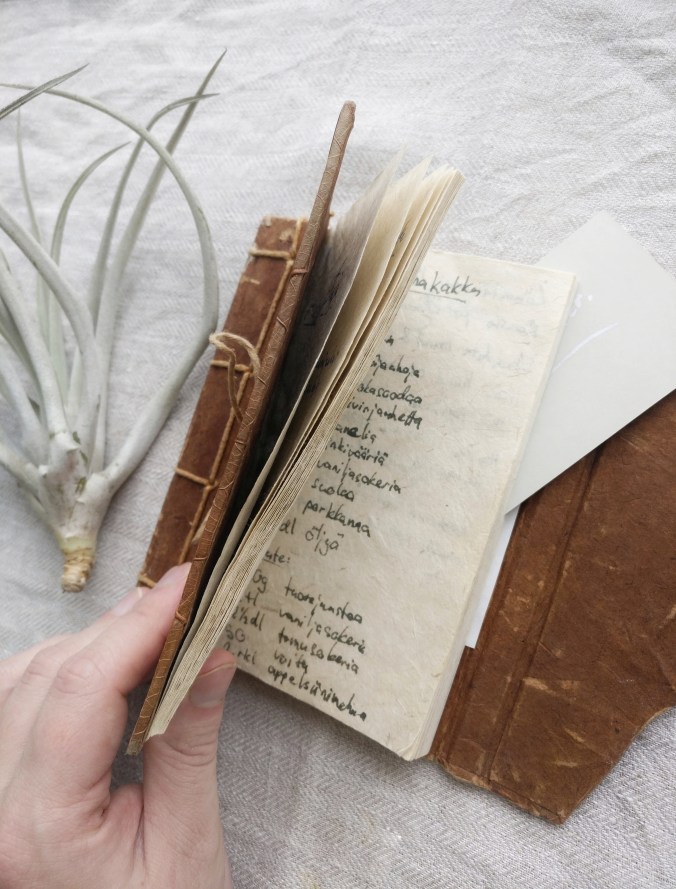 nakakku
jauhoja
okasoodaa
ivinjauhetta
anelia
nkivääriä
vaniljasokeria
suolaa
porkkanaa
dl öljyä
ute:
0g tuorejuustoa
tl vaniljasokeria
½dl tomusokeria
0G voita
rkl appelsiinimehua